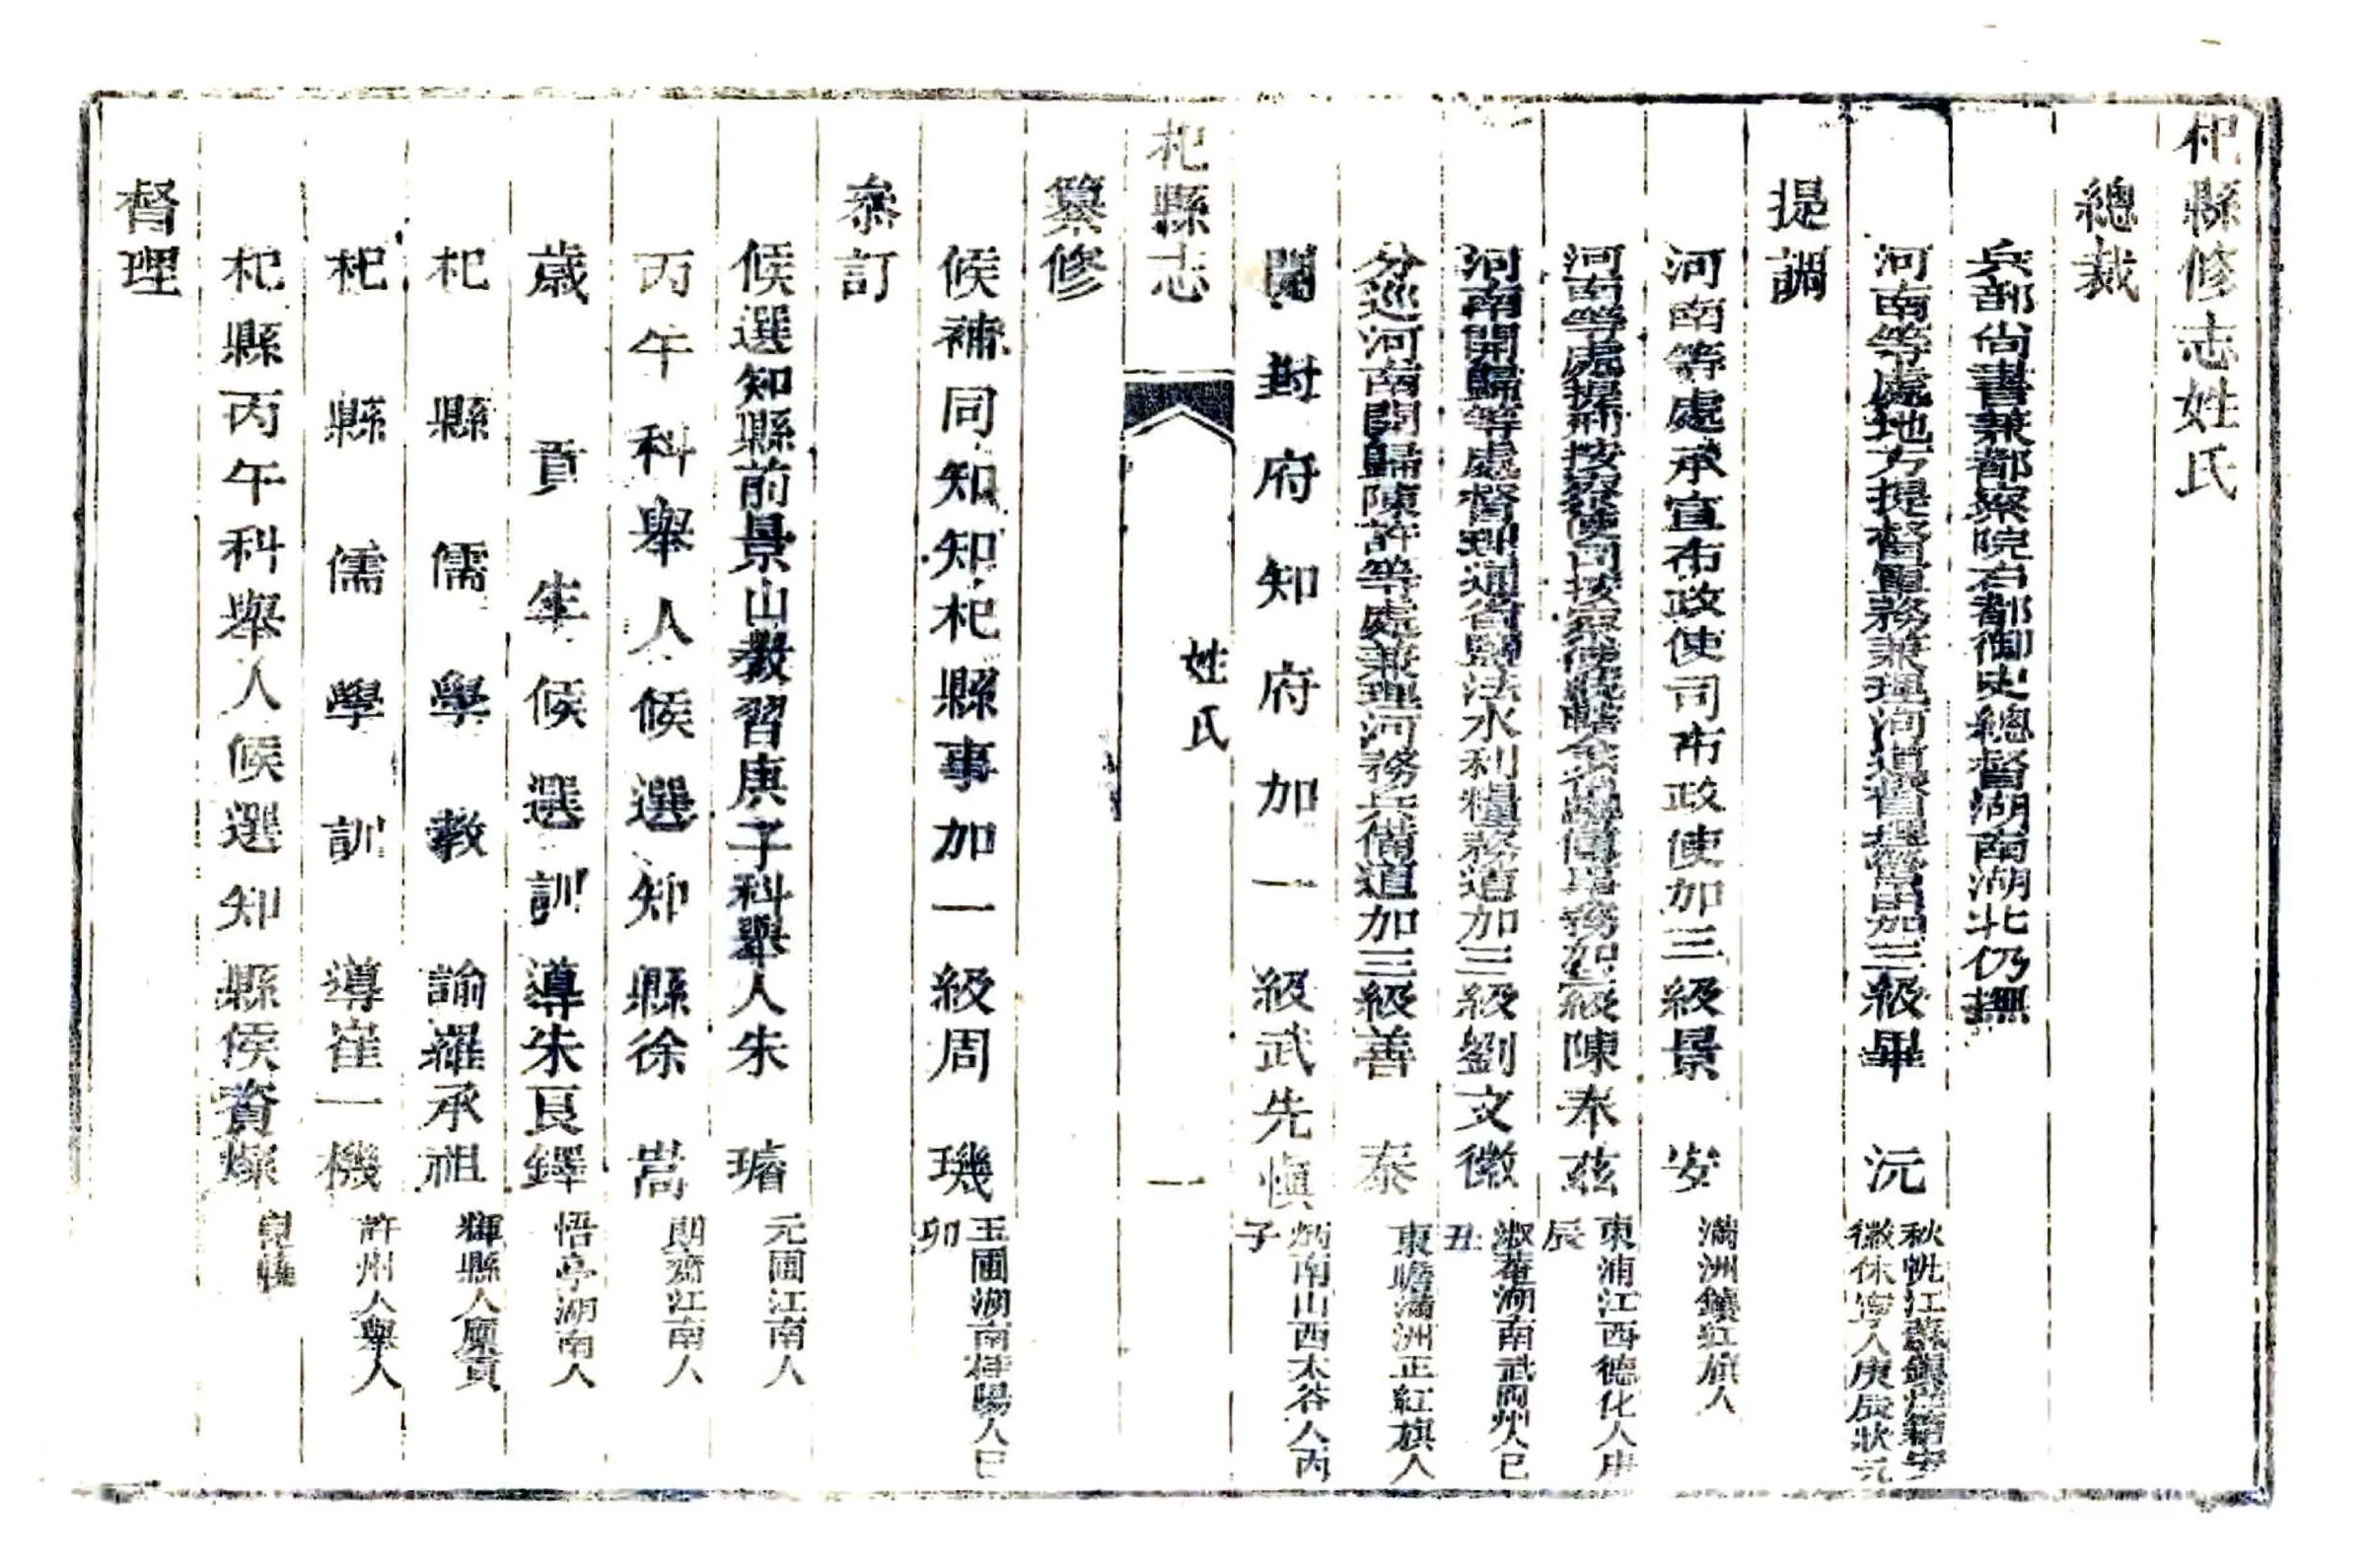 杞縣修志姓氏
總裁
兵部尚書兼都察院右都御史總督湖南湖北仍撫
河南等處地方提督軍務兼理河道加三級畢沅
秋帆江蘇鎮洋籍安
徽休寧人庚辰狀元
提調
河南等處承宣布政使司布政使加三級景安
滿洲鑲紅旗人
河南等處提刑按察使司按察使加三級陳奉茲
東浦江西德化人庚
辰
河南開歸等處督理通省鹽法水利糧務道加三級劉文徽
淑菴湖南武岡州人己
丑
分巡河南開歸陳許等處兼理河務兵備道加三級善泰
東瞻滿洲正紅旗人
開封府知府加一級武先慎
炳南山西太谷人丙
子
杞縣志
姓氏
一
纂修
候補同知知杞縣事加一級周璣
玉圃湖南桂陽人己
卯
叅訂
候選知縣前景山教習庚子科舉人朱璿
元圃江南人
丙午科舉人候選知縣徐嵩
朗齋江南人
歲貢生候選訓導朱良鐸
悟亭湖南人
杞縣儒學教諭羅承祖
輝縣人廩貢
杞縣儒學訓導崔一機
許州人舉人
杞縣丙午科舉人候選知縣侯資燦
督理